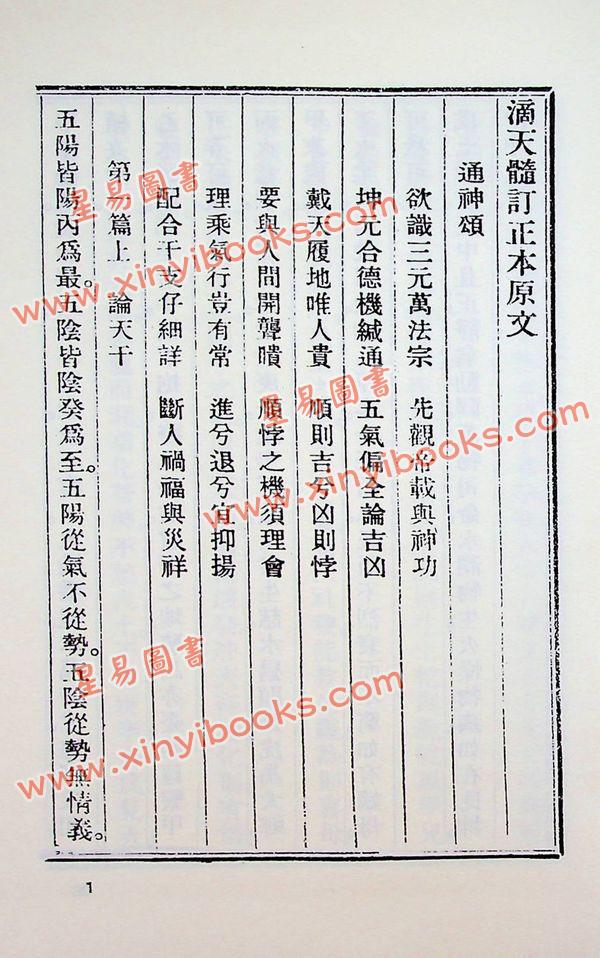 滴天髓訂正本原文
通神頌
欲識三元萬法宗　先觀帝載與神功
坤元合德機緘通　五氣偏全論吉凶
戴天履地唯人貴　順則吉兮凶則悖
要與人間開聾聵　順悖之機須理會
理乘氣行豈有常　進兮退兮宜抑揚
配合干支仔細詳　斷人禍福與災祥
第一篇上　論天干
五陽皆陽丙爲最。五陰皆陰癸爲至。五陽從氣不從勢。五陰從勢無情義。
1
星易圖書
www.xinyibooks.com
星易圖書
www.xinyibooks.com
星易圖書
www.xinyibooks.com
星易圖書
www.xinyibooks.com